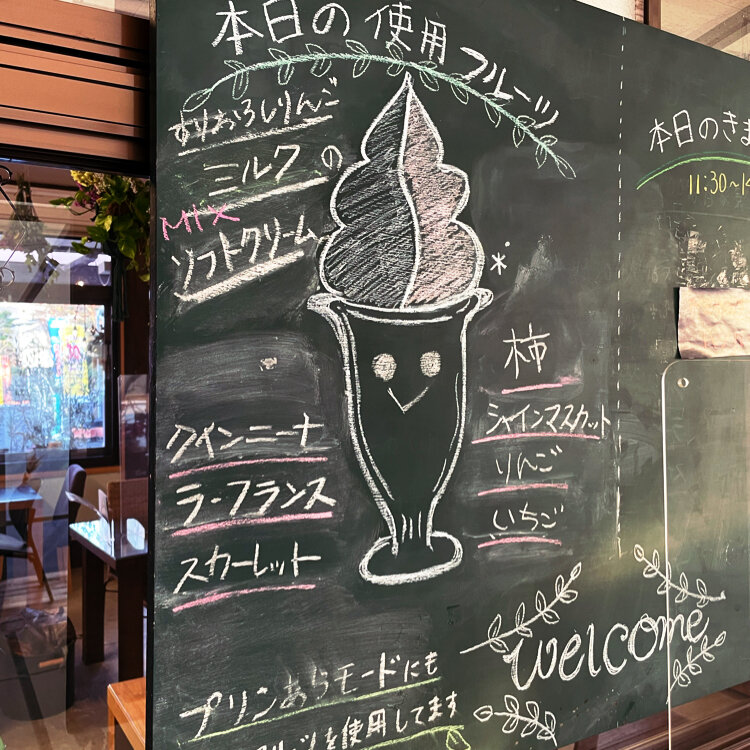 本日の使用フルーツ
すりおろしりんご
ミルクの
MIX
ソフトクリーム
クインニーナ
ラ・フランス
スカーレット
柿
シャインマスカット
りんご
いちご
プリンあらモードにも
フルーツを使用してます
welcome
本日のきま
11:30~14